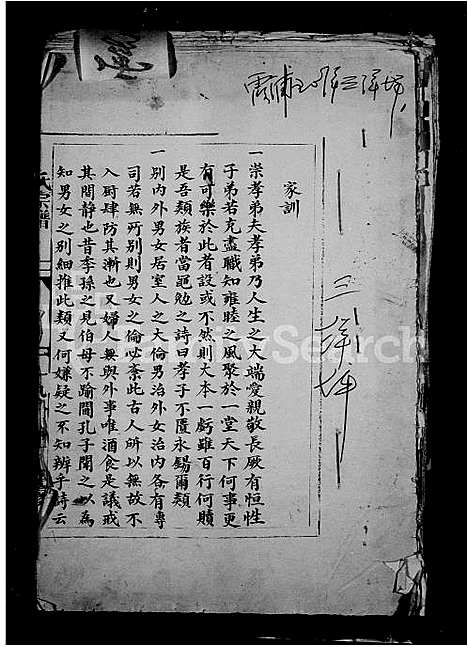 家訓
一崇孝弟夫孝弟乃人生之大端愛親敬長厥有恒性
子弟若克盡職知雍睦之風聚於一堂天下何事更
有可樂於此者設或不然則大本一虧雖百行何贖
是吾類族者當黽勉之詩曰孝子不匱永錫爾類
一別內外男女居室人之大倫男治外女治內各有專
司若無所別則男女之倫必紊此古人所以無故不
入厨肆防其漸也又婦人無與外事唯酒食是議戒
其間靜也昔季孫之見伯母不踰閫孔子聞之以為
知男女之別細推此類又何嫌疑之不知辨乎詩云
氏宗譜
FamilySearch